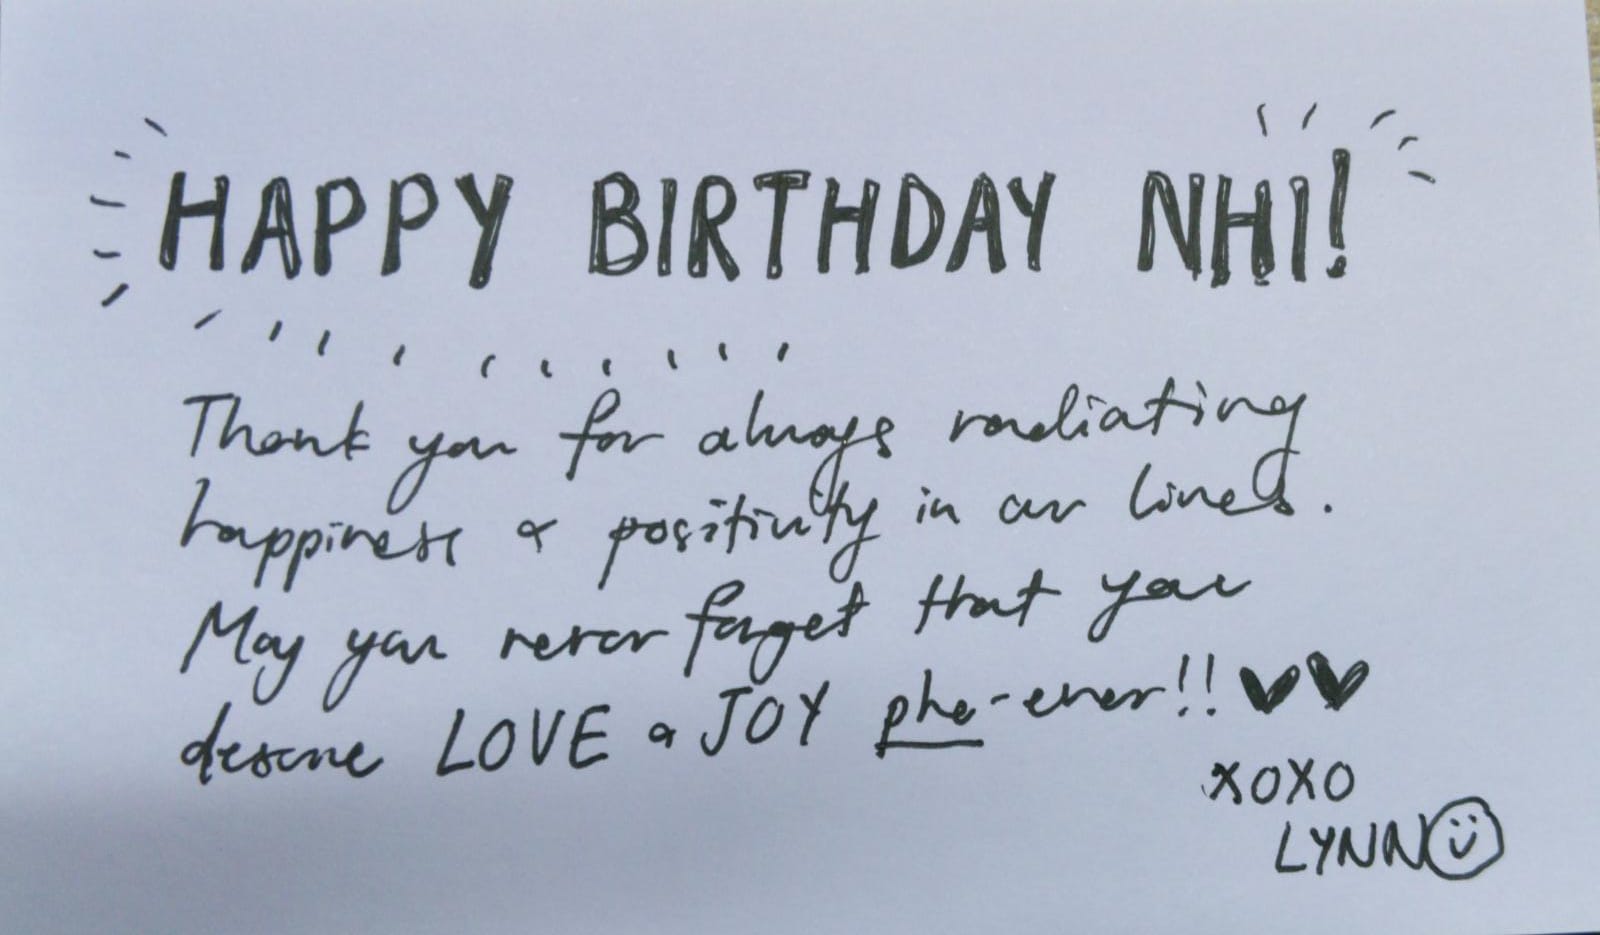 HAPPY BIRTHDAY NHI!
Thank you for always radiating
happiness & positivity in our lives.
May you never forget that you
deserve LOVE & JOY pho-ever!! ♥♥
XOXO
LYNN